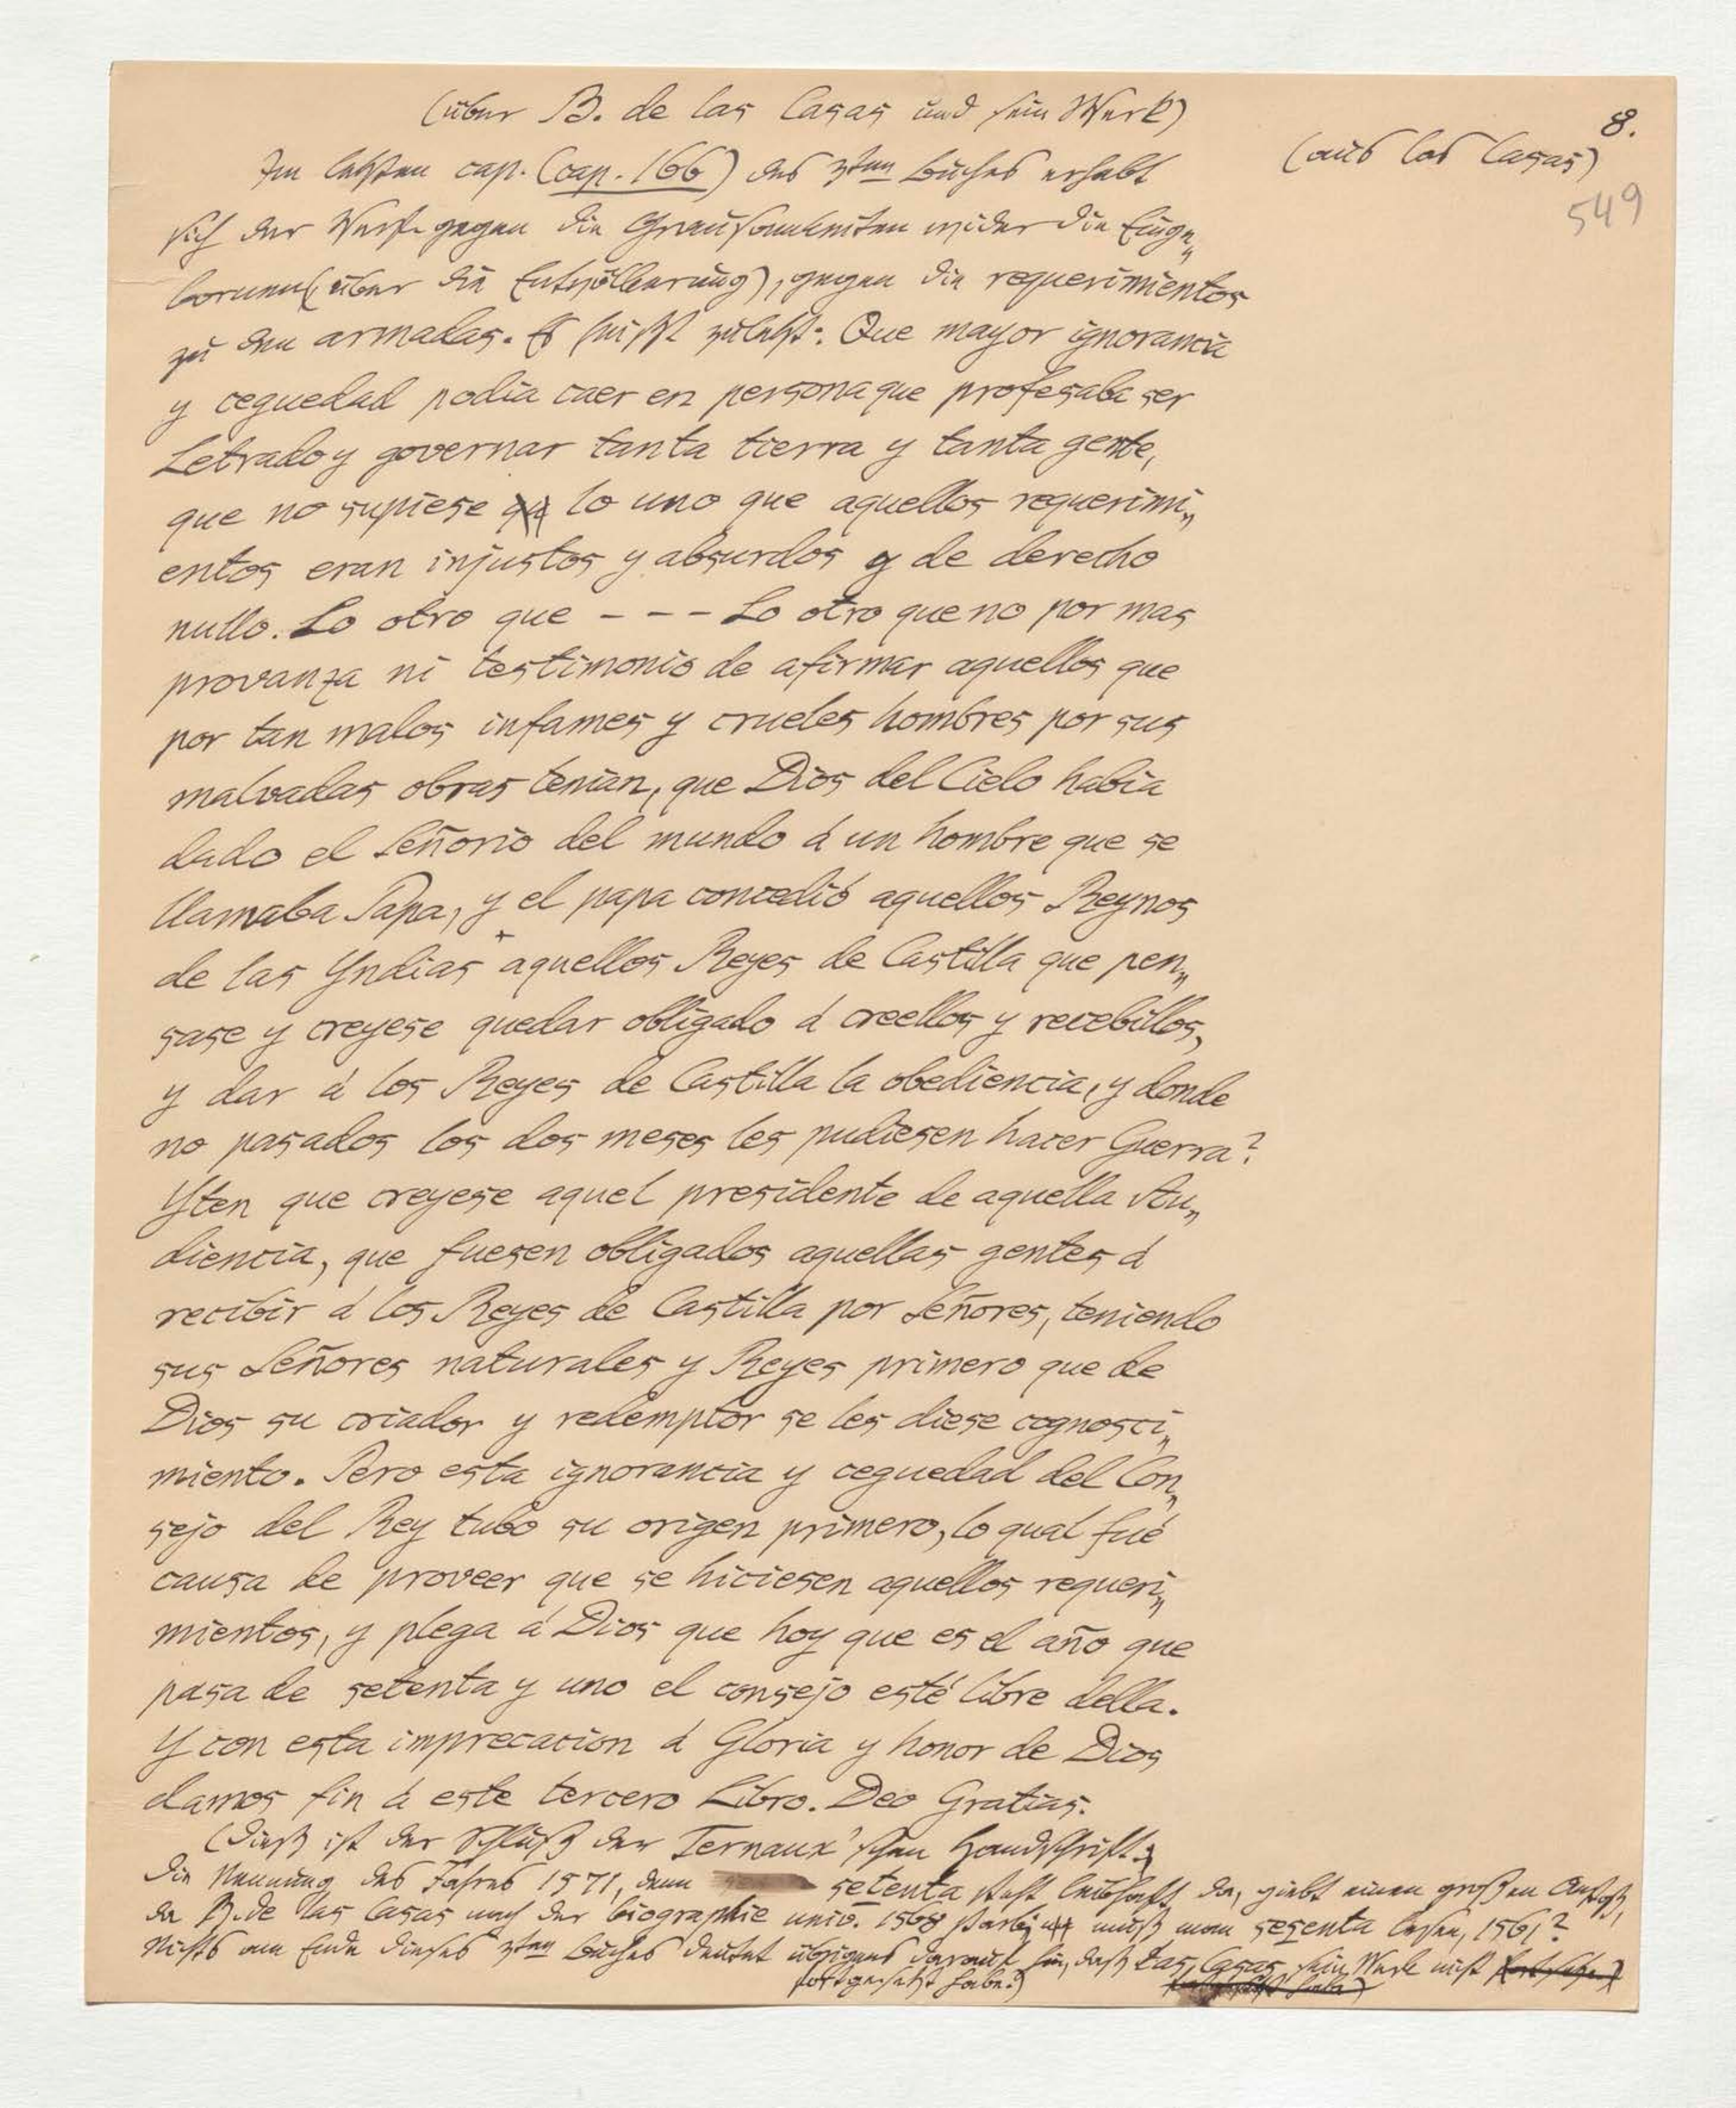 8.
(über B. de las Casas und sein Werk)
(aus las Casas)
549
Im letzten cap. (cap. 166) des 3ten Buches erhebt
sich der Verf. gegen die Grausamkeiten wider die Einge„
bornen (über die Entvölkerung), gegen die requerimientos
zu den armadas. Es heißt zuletzt: Que mayor ignorancia
y ceguedad podia caer en persona que profesaba ser
Letrado y governar tanta tierra y tanta gente,
que no supiese lo uno que aquellos requerimi„
entos eran injustos y absurdos y de derecho
nullo. Lo otro que - - - Lo otro que no por mas
provanza ni testimonio de afirmar aquellos que
por tan malos infames y crueles hombres por sus
malvadas obras tenian, que Dios del Cielo habia
dado el Señorio del mundo á un hombre que se
llamaba Papa, y el papa concedió aquellos Reynos
de las Yndias aquellos Reyes de Castilla que pen„
sase y creyese quedar obligado á creellos y recebillos,
y dar á los Reyes de Castilla la obediencia, y donde
no pasados los dos meses les pudiesen hacer Guerra?
Yten que creyese aquel presidente de aquella Au„
diencia, que fuesen obligados aquellas gentes á
recibir á los Reyes de Castilla por Señores, teniendo
sus Señores naturales y Reyes primero que de
Dios su criador y redemptor se les diese cognosci„
miento. Pero esta ignorancia y ceguedad del Con„
sejo del Rey tubo su origen primero, lo qual fué
causa de proveer que se hiciesen aquellos requeri„
mientos, y plega á Dios que hoy que es el año que
pasa de setenta y uno el consejo esté libre della.
Y con esta imprecacion á Gloria y honor de Dios
damos fin á este tercero Libro. Deo Gratias.
(Dieß ist der Schluß der Ternaux'schen Handschrift.
Die Nennung des Jahres 1571, denn setenta steht leibhaft da, giebt einen großen Anstoß,
da B. de las Casas nach der biographie univ. 1568 starb; muß man sesenta lesen, 1561?
Nichts am Ende dieses 3ten Buches deutet übrigens darauf hin, daß Las Casas sein Werk nicht
fortgesetzt habe.)